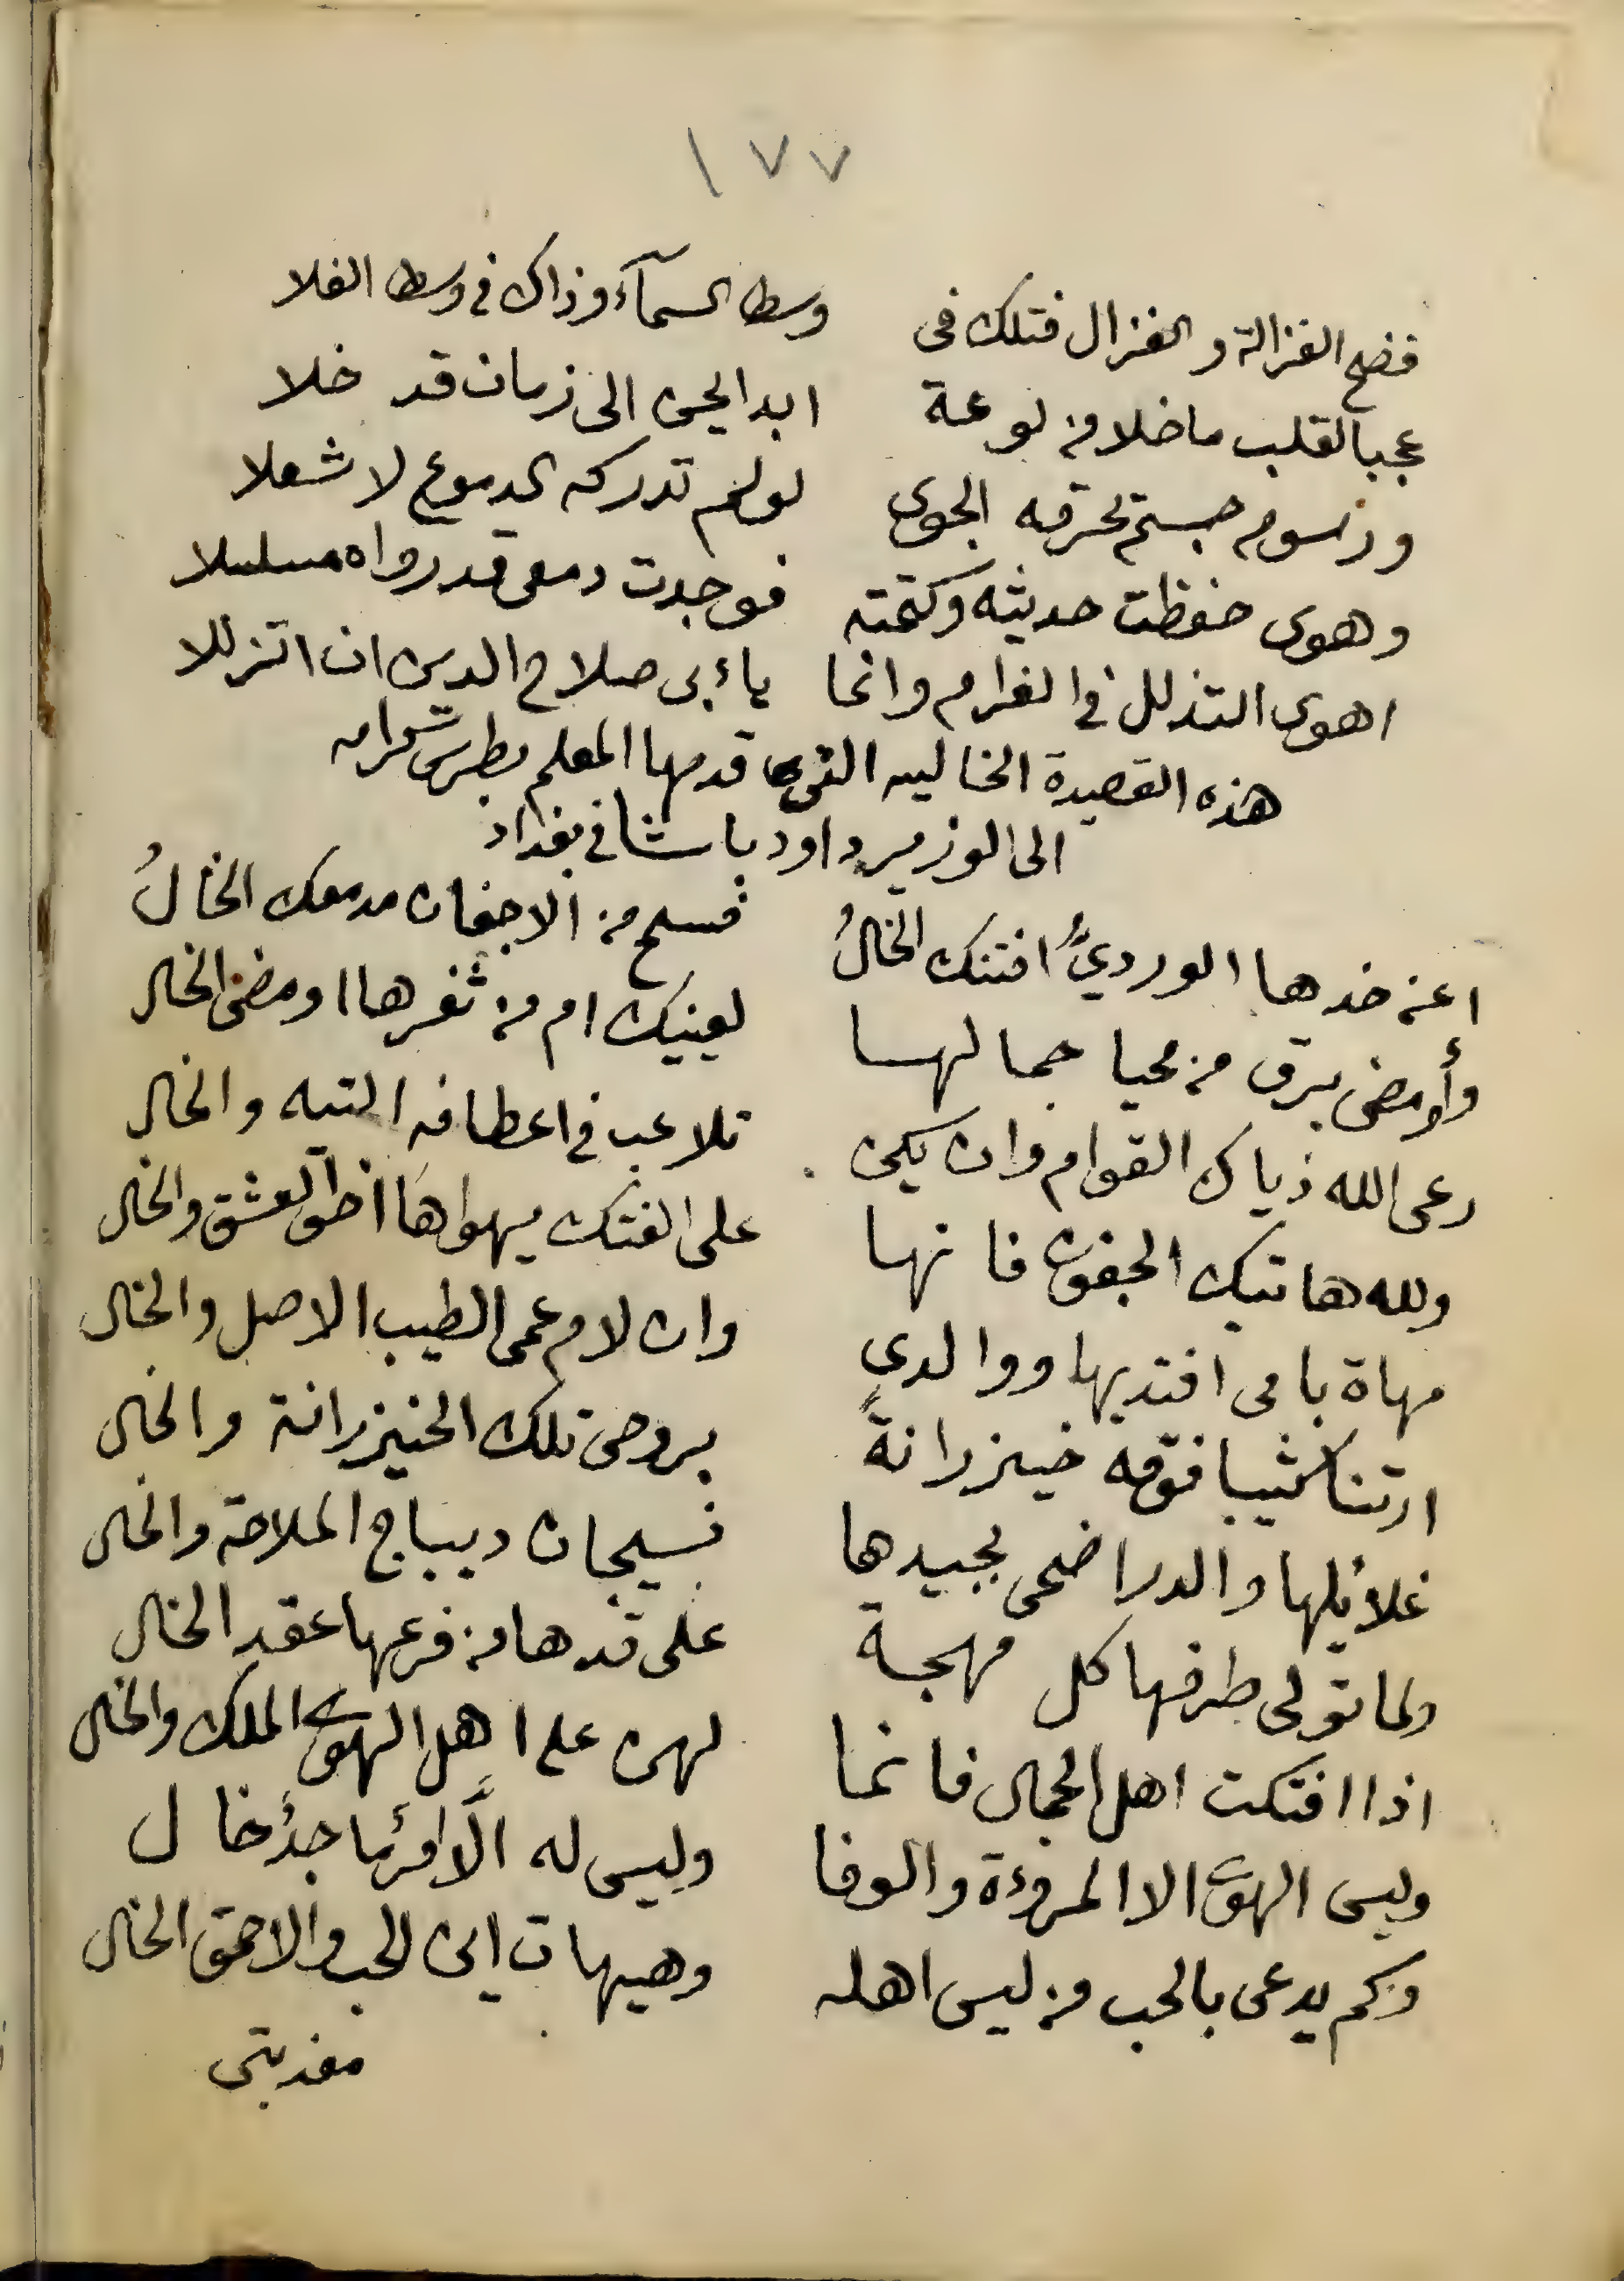 ١٧٧
فضح الغزالة والغزال فتلك فى وسط السمآء وذاك في وسط الفلا
عجبا لقلب ما خلا من لوعة ابدا يحن الى زمان قد خلا
ورسوم جسم تحرقه الجوى لو لم تدركه الدموع لاشعلا
وهوى حفظت حديثه وكتمته فوجدت دمعى قد رواه مسلسلا
اهوى التذلل في الغرام وانما يأبى صلاح الدين ان اتذللا
هذه القصيدة الخاليه التى قدمها المعلم بطرس كرامه
الى الوزير داود باشا في بغداد
اعن خدها الورديُّ افتنك الخالُ فسح من الاجفان مدمعك الخالُ
وأومض برق من محيا جمالها لعينيك ام من ثغرها اومض الخال
رعى الله ذياك القوام وان يكن تلاعب في اعطافه التيه والخال
ولله هاتيك الجفون فانها على الفتك يهواها اخو العشق والخال
مهاة بامى افتديها ووالدي وان لام عمى الطيب الاصل والخال
ارتنا كثيبا فوقه خيزرانةً بروحى تلك الخيزرانة والخال
غلائلها والدر اضحى بجيدها نسيجان ديباج الملاحة والخال
ولما تولى طرفها كل مهجة على قدها من فرعها عقد الخال
اذا افتكت اهل الجمال فانما لهن على اهل الهوى الملك والخال
وليس الهوى الا المروءة والوفا وليس له الّا امرئ ماجدٌ خال
وكم يدعى بالحب من ليس اهله وهيهات اين الحب والاحمق الخال
مغذبتى